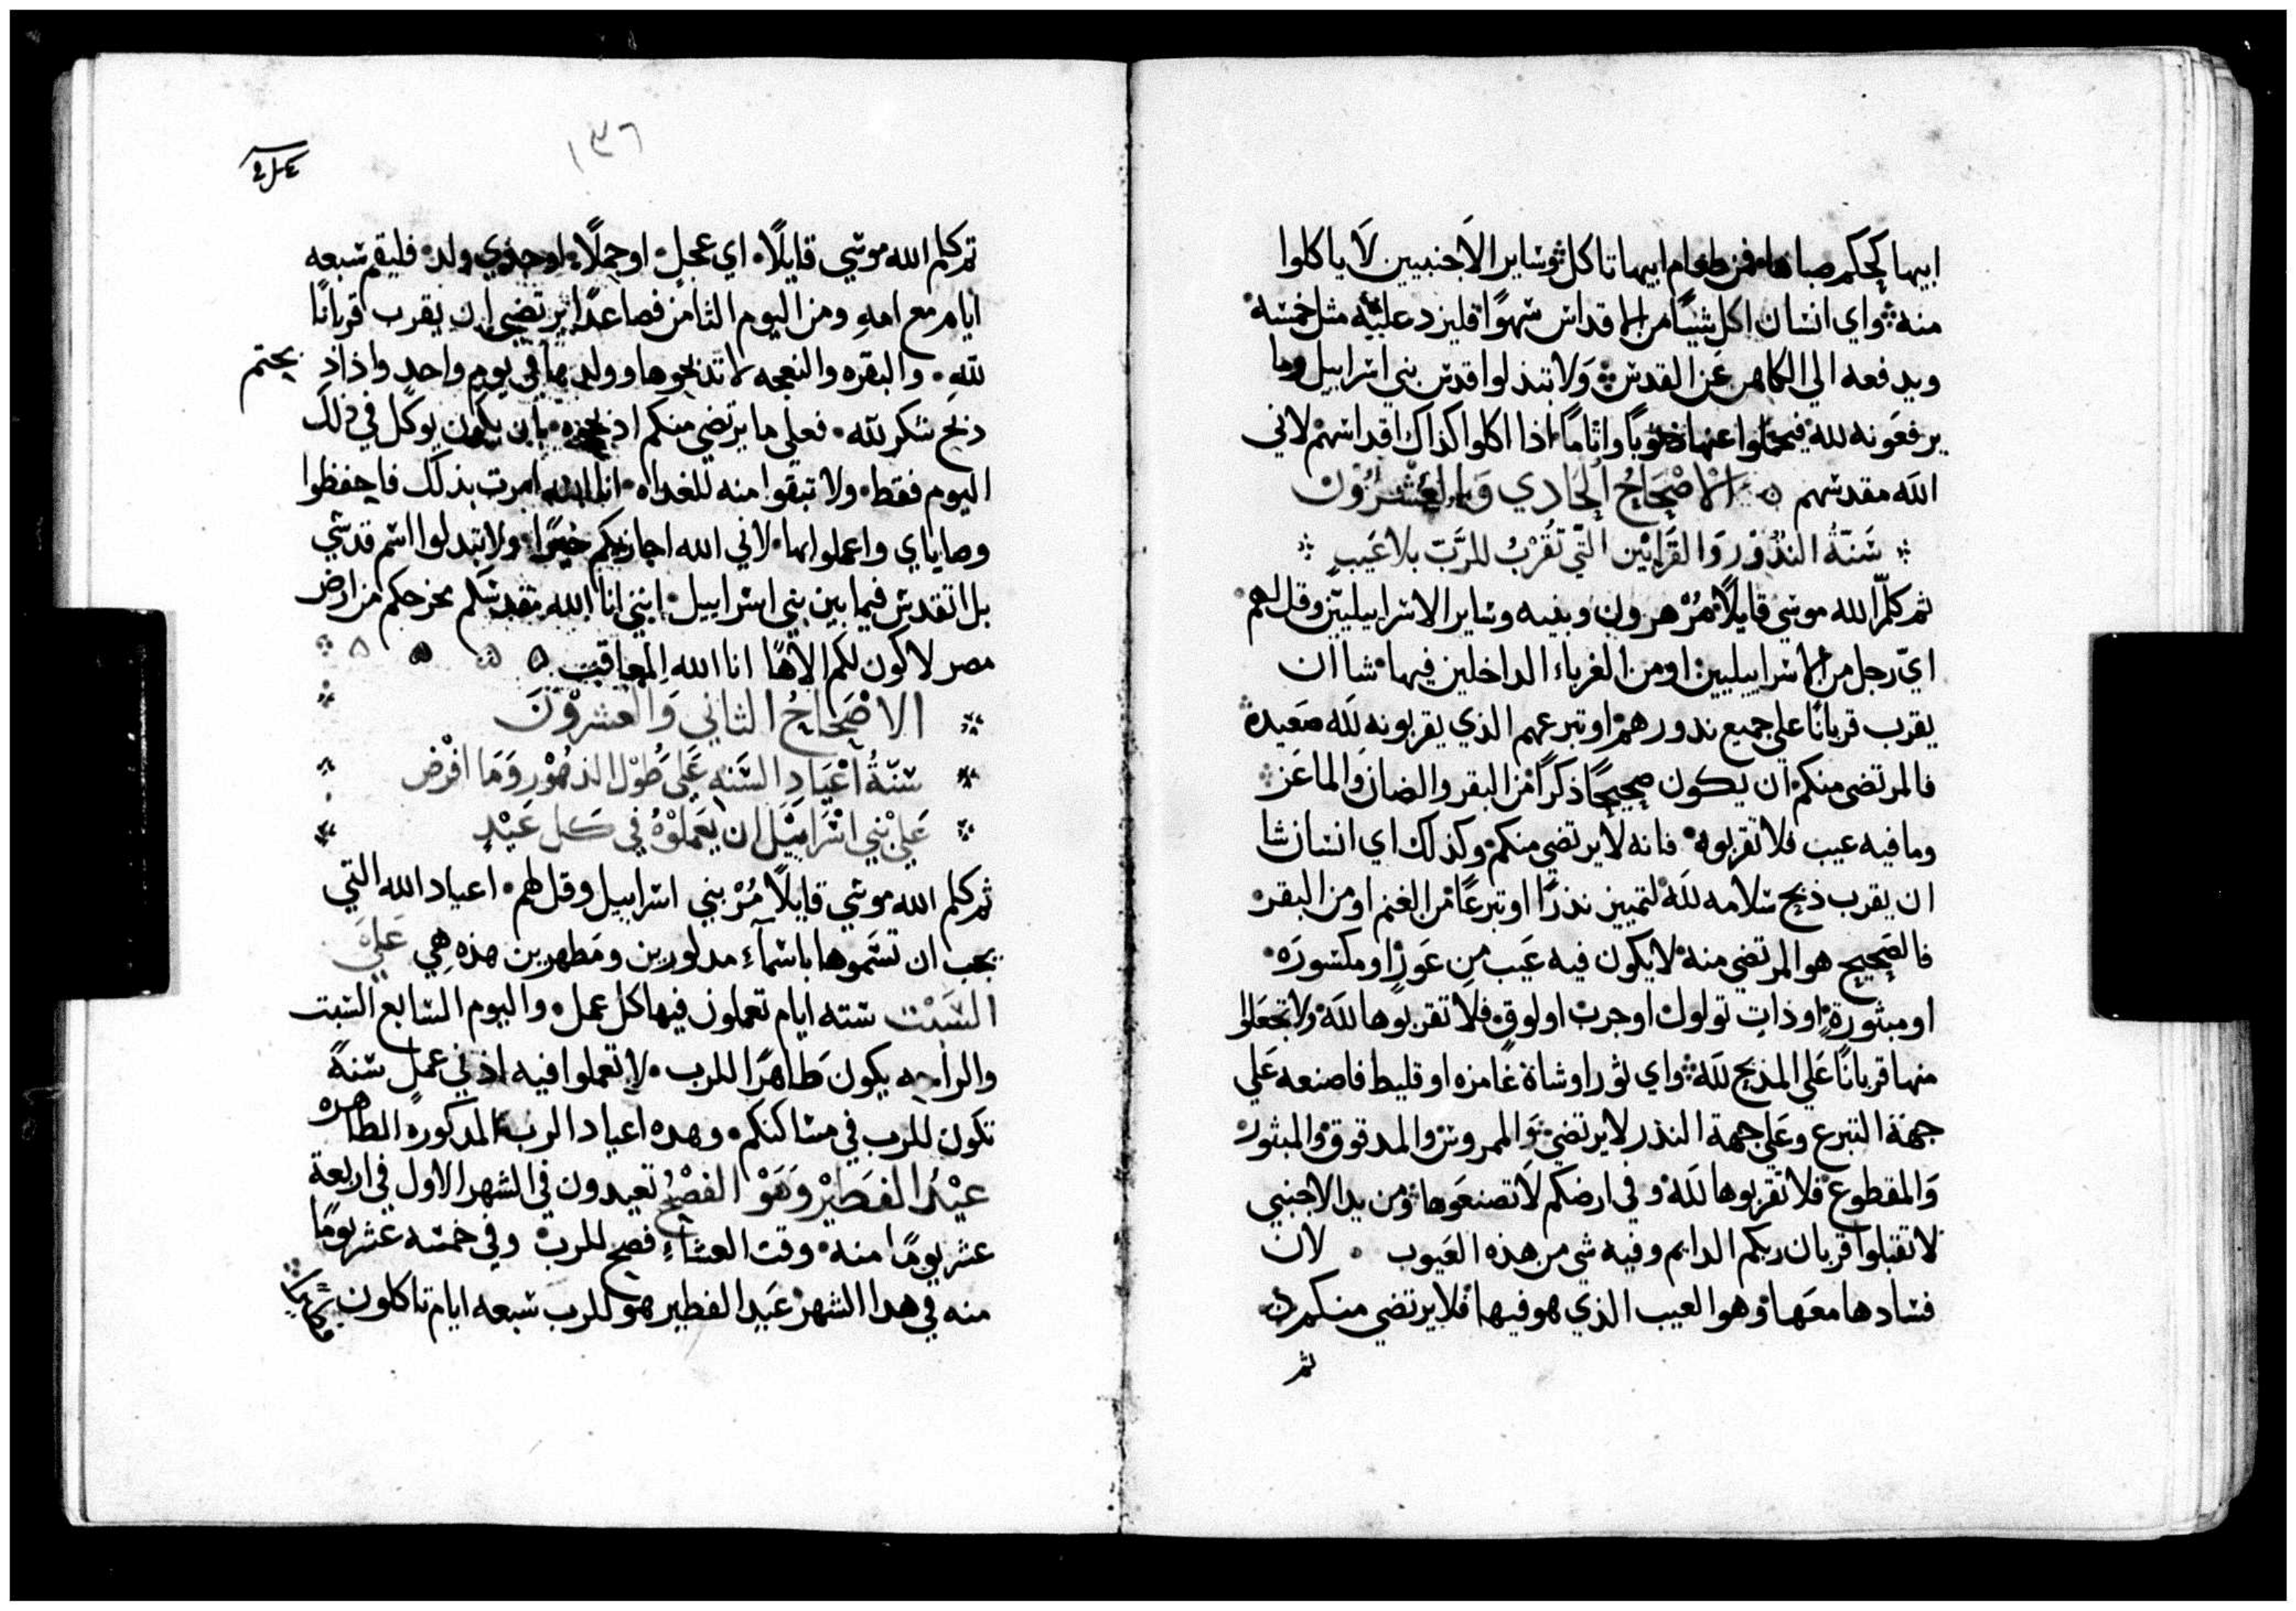 ابيها كحكم صباها فمن طعام ابيها تاكل وساير الاجنبيين لا ياكلوا
منه واي انسان اكل شيًا من الاقداس سهوًا فليزد عليه مثل خمسه
ويدفعه الي الكاهن عن القدس ولا تبذلوا قدس بني اسراييل وما
يرفعونه لله فيحملوا عنها ذنوبًا واثامًا اذا اكلوا كذاك اقداسهم لاني
الله مقدسهم الاصحاح الحادي والعشرون
سنة النذور والقرابين التي تقرب للرب بلا عيب
ثم كلم الله موسي قايلًا مر هرون وبنيه وساير الاسراييليين وقل لهم
اي رجل من الاسراييليين او من الغرباء الداخلين فيها شا ان
يقرب قربانًا علي جميع ندورهم او تبرعهم الذي يقربونه لله صعيدة
فالمرتضى منكم ان يكون صحيحًا ذكرًا من البقر والضان والماعز
وما فيه عيب فلا تقربوه فانه لا يرتضي منكم وكذلك اي انسان شا
ان يقرب ذبح سلامه لله لتمييز نذرًا او تبرعًا من الغنم او من البقر
فالصحيح هو المرتضي منه لا يكون فيه عيب من عور او مكسوره
او مبثورة او ذات تولول او جرب او لوق فلا تقربوها لله ولا تجعلوا
منها قربانًا علي المذبح لله واي ثور او شاة غامزه او قليط فاصنعه علي
جهة التبرع وعلي جهة النذر لا يرتضي والممروس والمدقوق والمبثور
والمقطوع فلا تقربوها لله وفي ارضكم لا تصنعوها ومن يد الاجنبي
لا تقبلوا قربان ربكم الدايم وفيه شي من هذه العيوب لان
فسادها معها وهو العيب الذي هو فيها فلا يرتضي منكم
ثم
١٣٦
ثم كلم الله موسي قايلًا اي عجل او حملًا او جذي ولد فليقم سبعه
ايام مع امه ومن اليوم الثامن فصاعدًا يرتضي ان يقرب قربانًا
لله والبقره والنعجه لا تذبحوها وولدها في يوم واحد واذا ذبحتم
ذبح شكر لله فعلي ما يرتضي منكم اذبحوه بان يكون يوكل في ذلك
اليوم فقط ولا تبقوا منه للغداه انا الله امرت بذلك فاحفظوا
وصاياي واعملوا بها لاني الله اجازيكم خيرًا ولا تبدلوا اسم قدسي
بل اتقدس فيما بين بني اسراييل انني انا الله مقدسكم مخرجكم من ارض
مصر لاكون لكم الاهًا انا الله المعاقب
الاصحاح الثاني والعشرون
سنة اعياد السنه علي طول الدهور وما افرض
علي بني اسراييل ان يعملوه في كل عيد
ثم كلم الله موسي قايلًا مر بني اسراييل وقل لهم اعياد الله التي
يجب ان تسموها باسماء مدلورين ومطهرين هذه هي علي
السبت سته ايام تعملون فيها كل عمل واليوم السابع السبت
والراحه يكون طاهرًا للرب لا تعملوا فيه اذني عمل سنة
تكون للرب في مساكنكم وهده اعياد الرب المدكوره الطاهره
عيد الفطير وهو الفصح تعيدون في الشهر الاول في اربعة
عشر يومًا منه وقت العشاء فصح للرب وفي خمسه عشر يومًا
منه في هدا الشهر عيد الفطير هو للرب سبعه ايام تاكلون